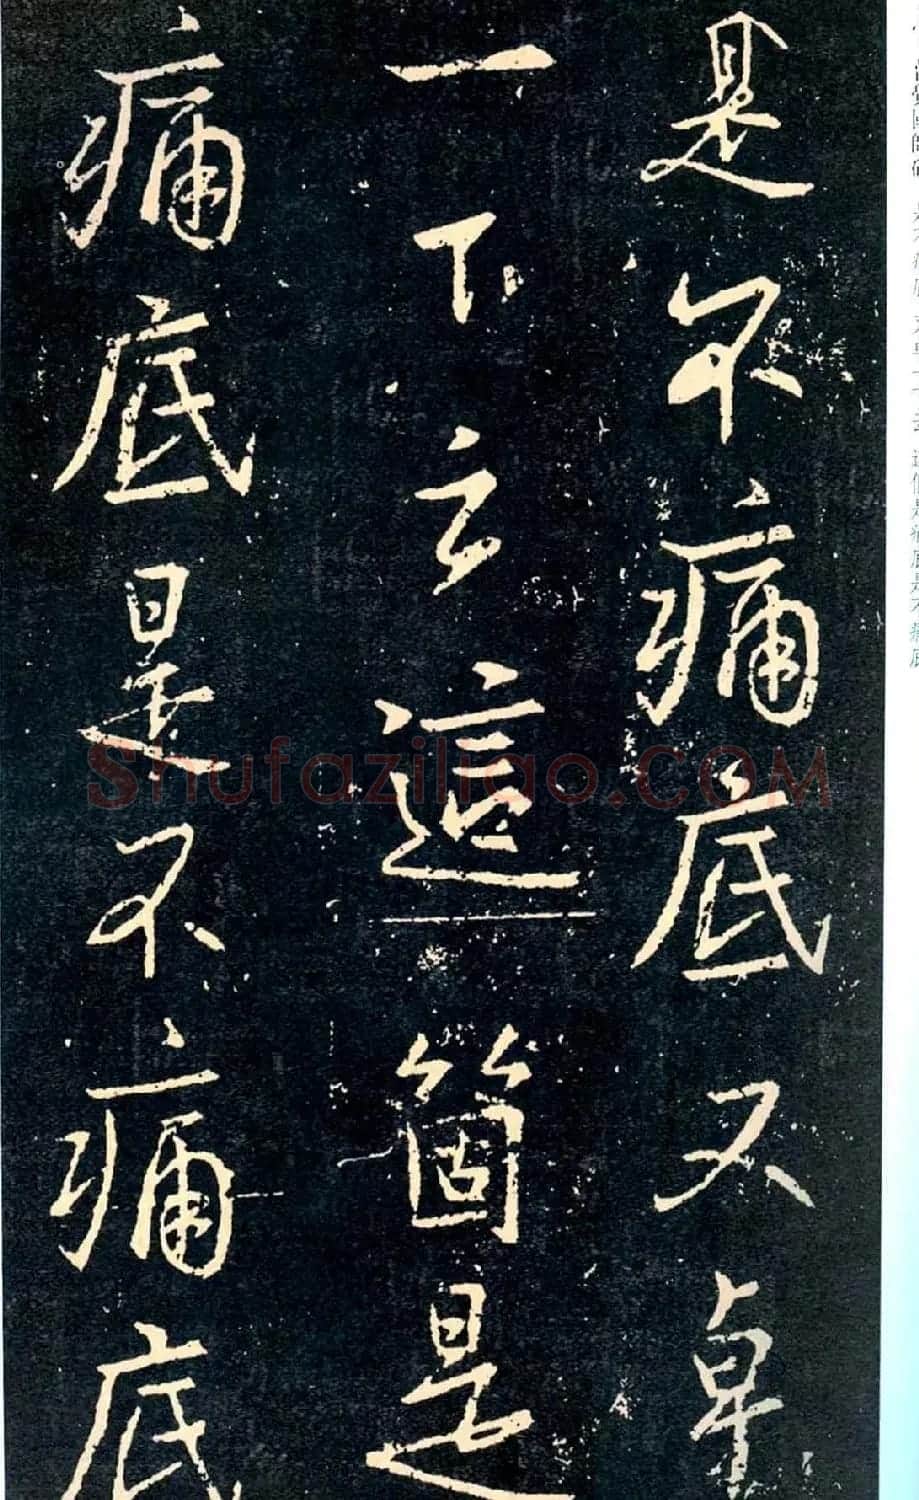 是不痛底又卓
一下云這箇是
痛底是不痛底
Shufaziliao.COM